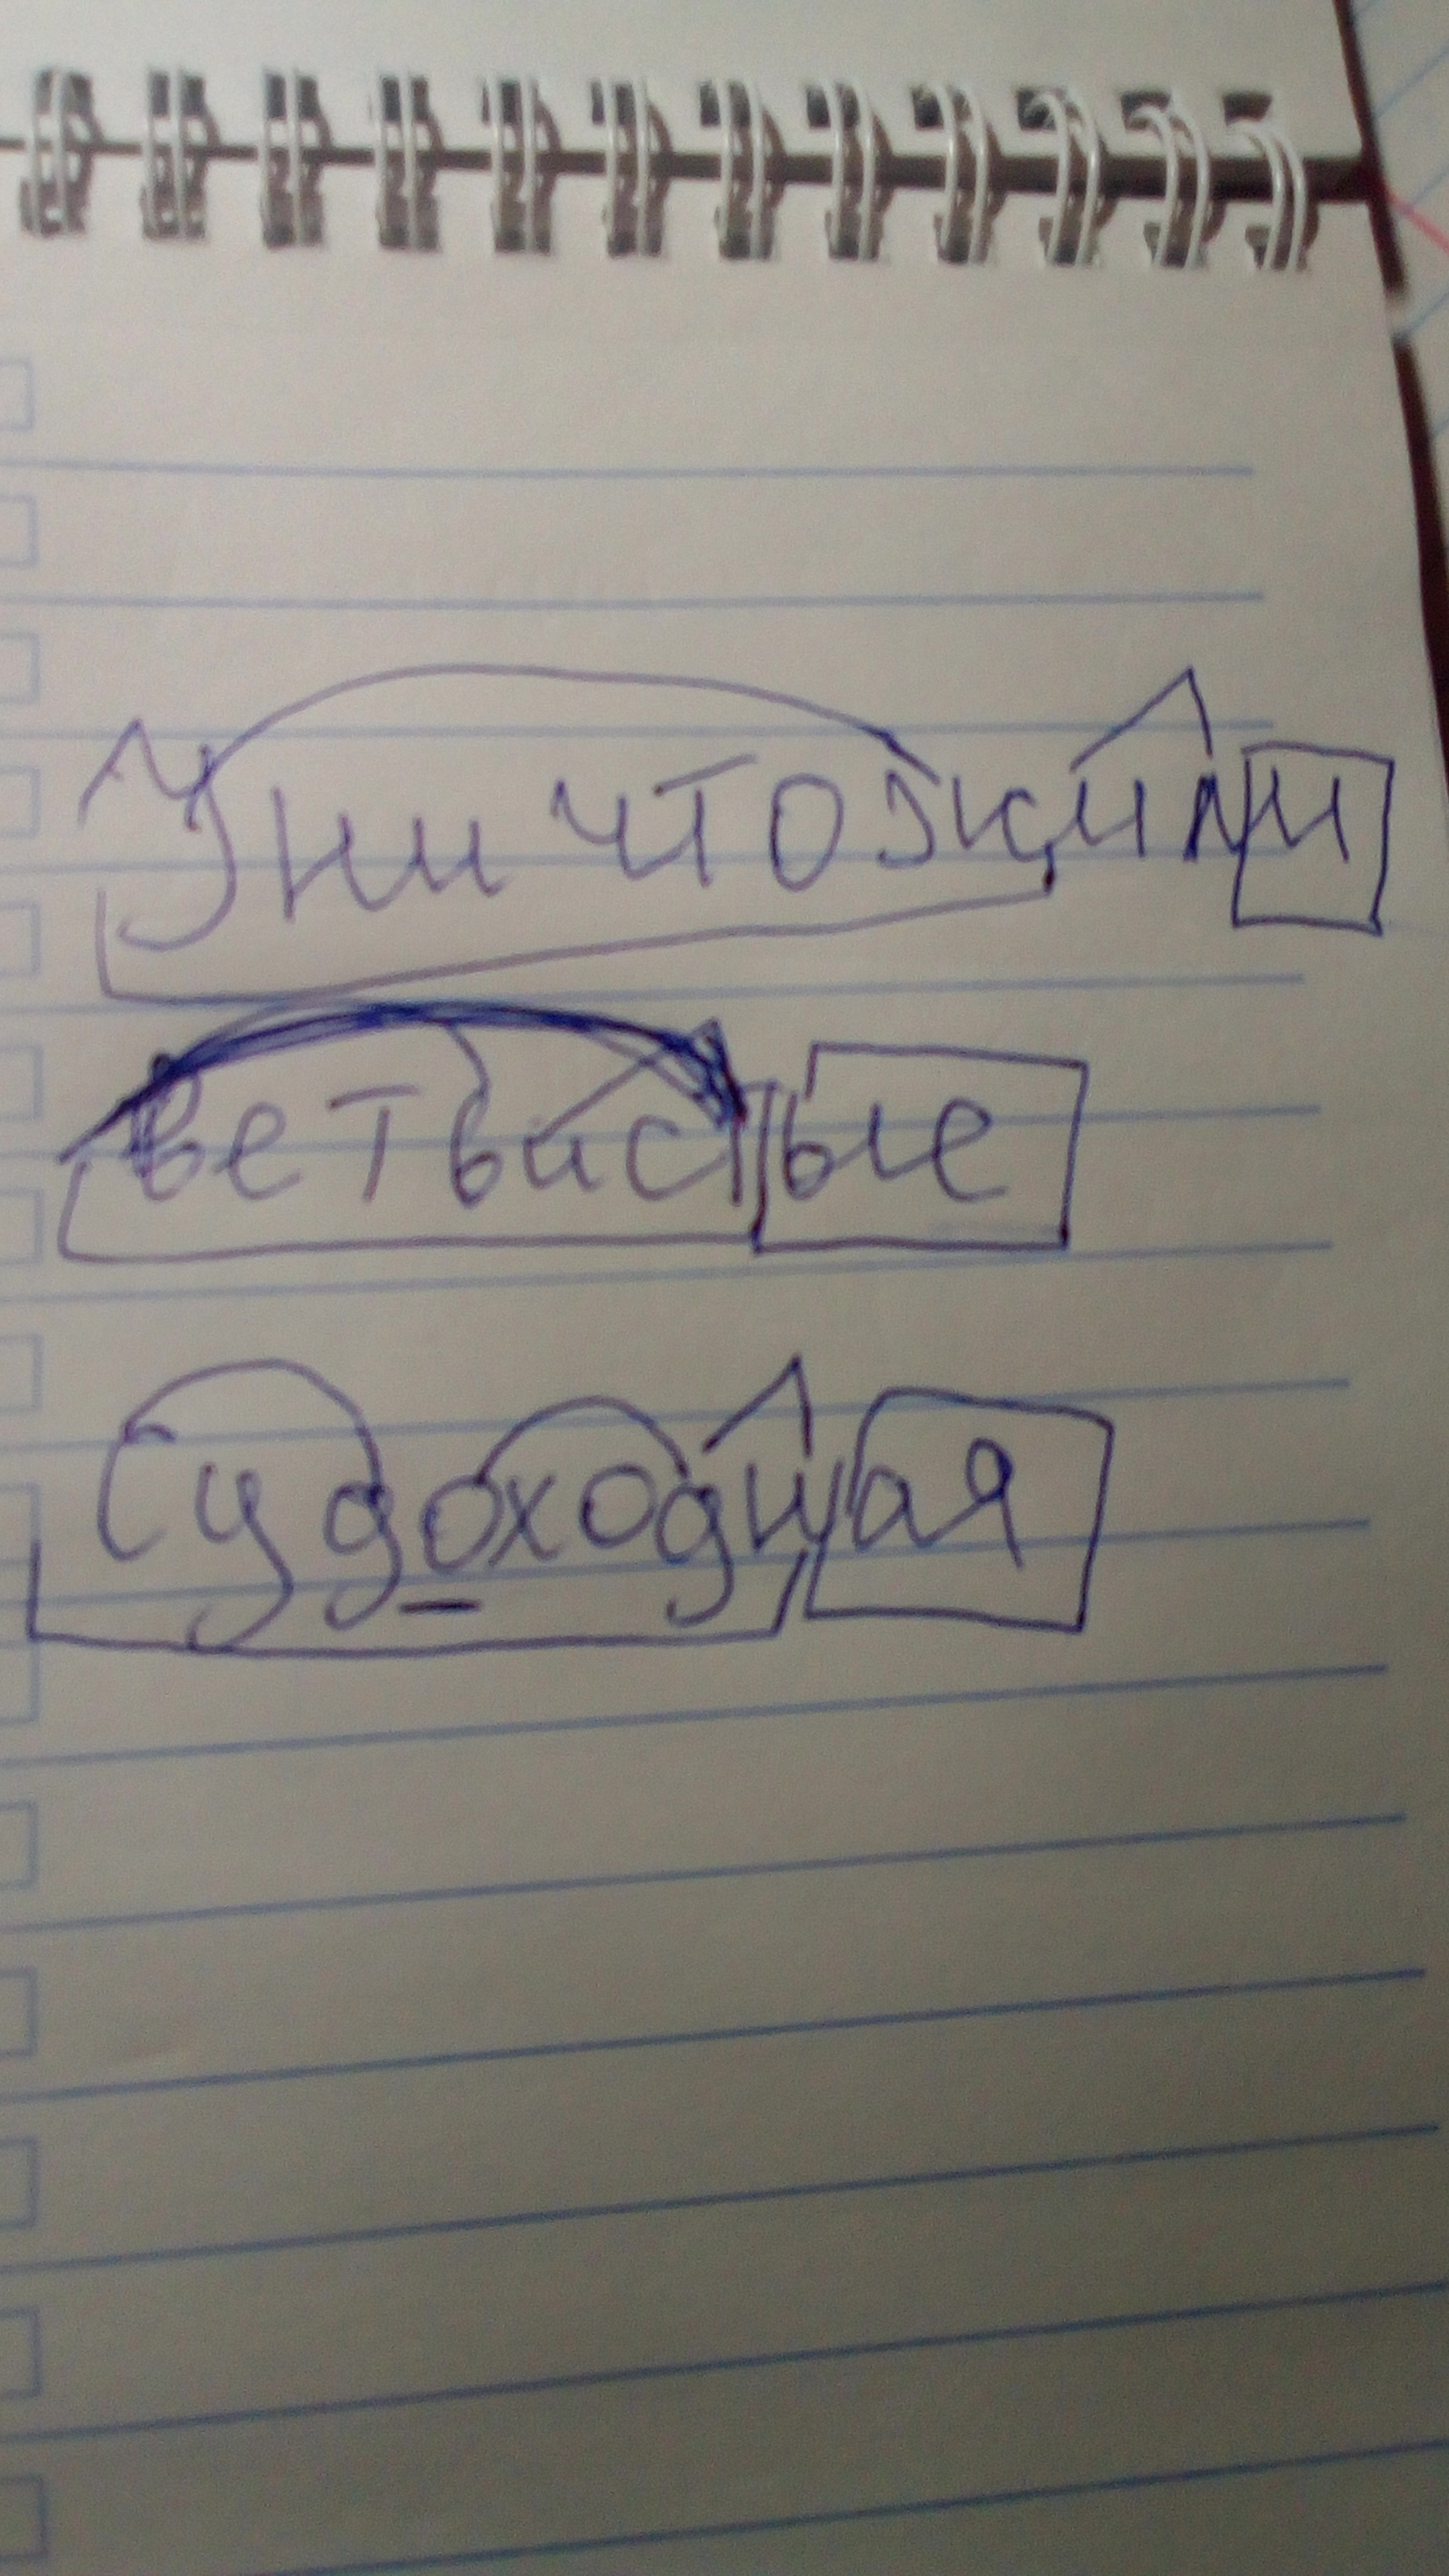 Уничтожили
Ветвистые
Судоходная